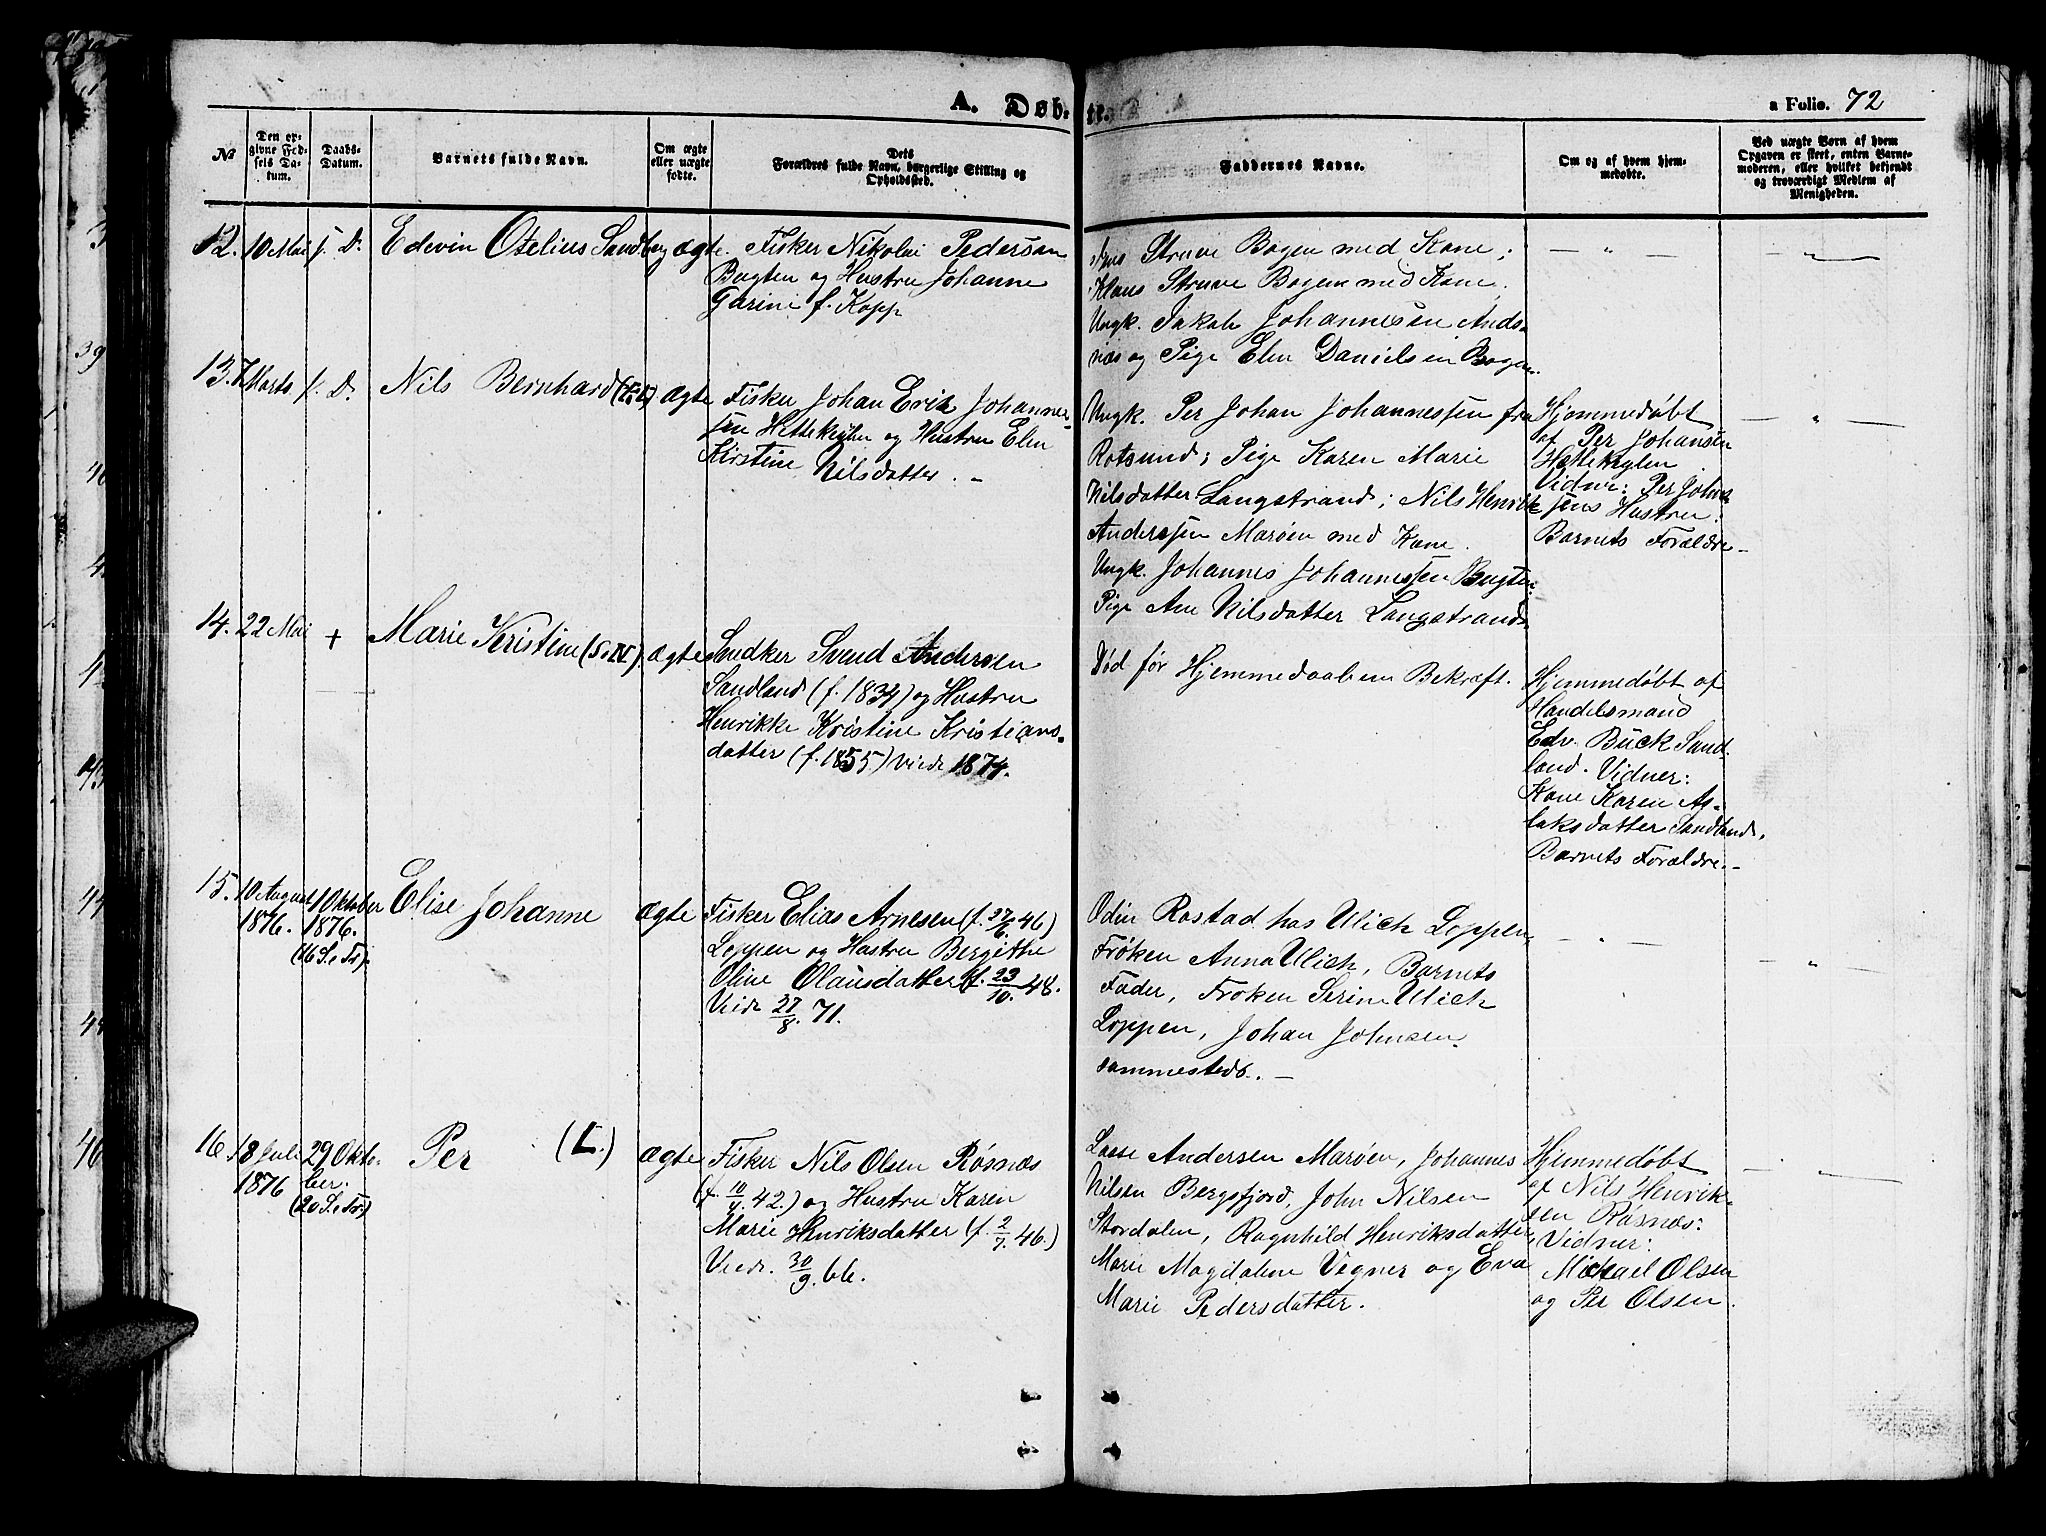 A. Døb-
te.
a Folio. 72
No
Den op-
givne Fød-
sels Da-
tum.
Daabs-
Datum.
Barnets fulde Navn.
Om ægte
eller uægte
fødte.
Dets
Forældres fulde Navn, borgerlige Stilling og
Opholdssted.
Faddernes Navne.
Om og af hvem hjem-
medøbte.
Ved uægte Børn af hvem
Opgaven er skeet, enten Barne-
moderen, eller hvilket bekjendt
og troværdigt Medlem af
Menigheden.
12. 10 Mai s. D. Edevin Otelius Sandberg ægte. Fisker Nikolai Pedersen
Bugten og Hustru Johanne
Garine f. Kopp
Jens Struve Bogen med Kone;
Klaus Struve Bogen med Kone,
Ungk. Jakob Johannesen Ands-
næs og Pige Elen Danielsen Bogen.
13. 7 Marts s. D. Nils Bernhard ægte Fisker Johan Erik Johannes-
sen Hettekeglen og Hustru Elen
Kirstine Nilsdatter. -
Ungk. Per Johan Johannessen fra
Rotsund; Pige Karen Marie
Nilsdatter Langstrand; Nils Henrik
Anderssen Marøen med Kone.
Ungk. Johannes Johannessen Bugten.
Pige Ane Nilsdatter Langstrand.
Hjemmedøbt
af Per Johansen
Hettekeglen
Vidner: Per Johan-
sens Hustru.
Barnets Forældre -
14. 22 Mai + Marie Kristine ægte Snedker Svend Andersen
Sandland (f. 1834) og Hustru
Henrikke Kristine Kristians-
datter (f. 1855) viede 1874.
Død før Hjemmedaabens Bekræft.
Hjemmedøbt af
Handelsmand
Edv. Buck Sand-
land. Vidner:
Kone Karen As-
laksdatter Sandland.
Barnets Forældre. -
15. 10 August 1 Oktober Elise Johanne ægte Fisker Elias Arnesen (f. 27/6. 46)
1876. 1876.
(16 S. e. Tr).
Loppen og Hustru Bergithe
Oline Olausdatter (f. 23/10. 48.
Viede 27/8. 71.
Odin Rostad hos Ulich Loppen,
Frøken Anna Ulich, Barnets
Fader, Frøken Serine Ulich
Loppen, Johan Johnsen
sammesteds. -
16. 18 Juli 29 Okto- Per (L.) ægte Fisker Nils Olsen Røsnæs
1876 ber.
(20 S. e. Tr)
(f. 10/4. 42.) og Hustru Karen
Marie Henriksdatter (f. 2/7. 46.)
Viede. 30/9. 66.
Lasse Andersen Marøen, Johannes
Nilsen Bergsfjord, John Nilsen
Stordalen, Ragnhild Henriksdatter,
Marie Magdalene Vegner og Eva
Marie Pedersdatter.
Hjemmedøbt
af Nils Henrik-
sen Røsnæs:
Vidner:
Mikael Olsen
og Per Olsen.